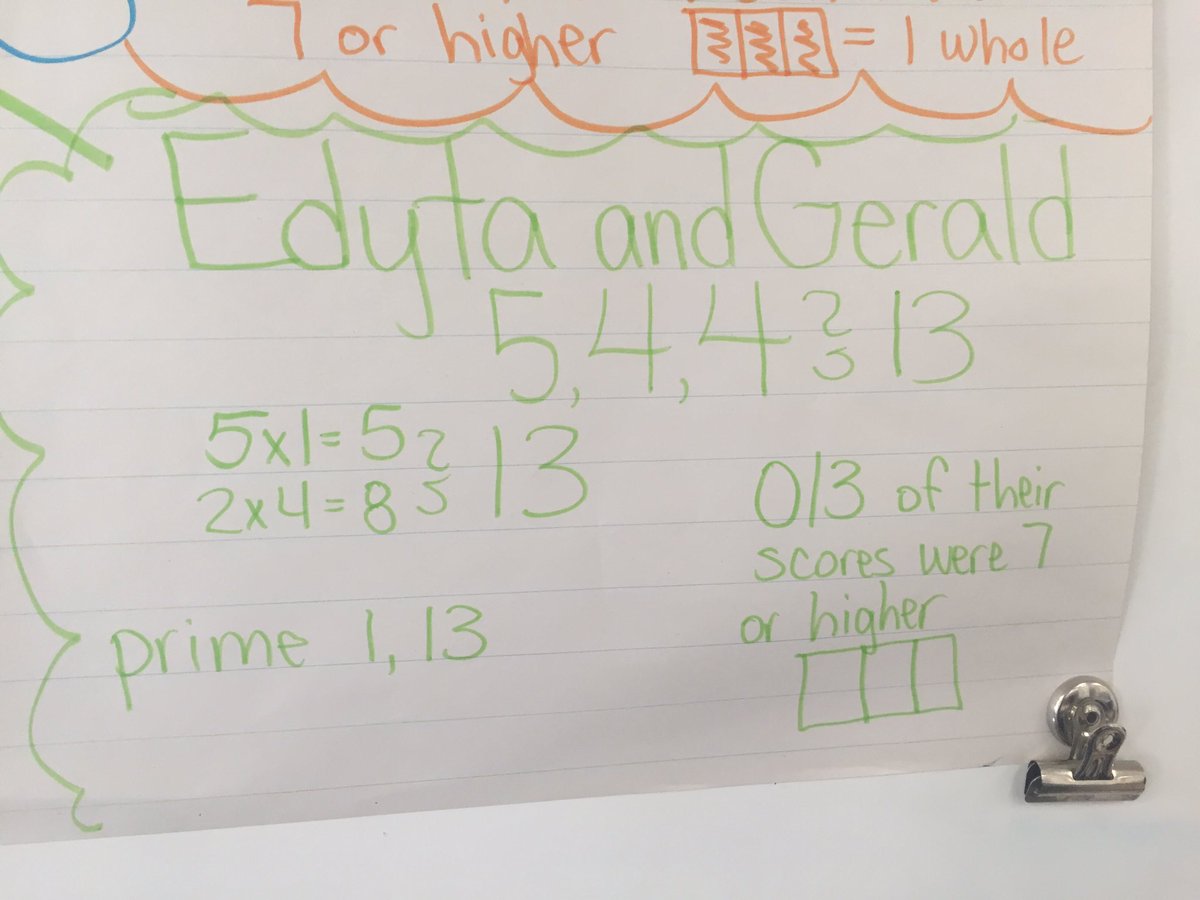 7 or higher = 1 whole
Edyta and Gerald
5, 4, 4 } 13
5x1=5 } 13
2x4=8
0/3 of their
scores were 7
or higher
prime 1, 13